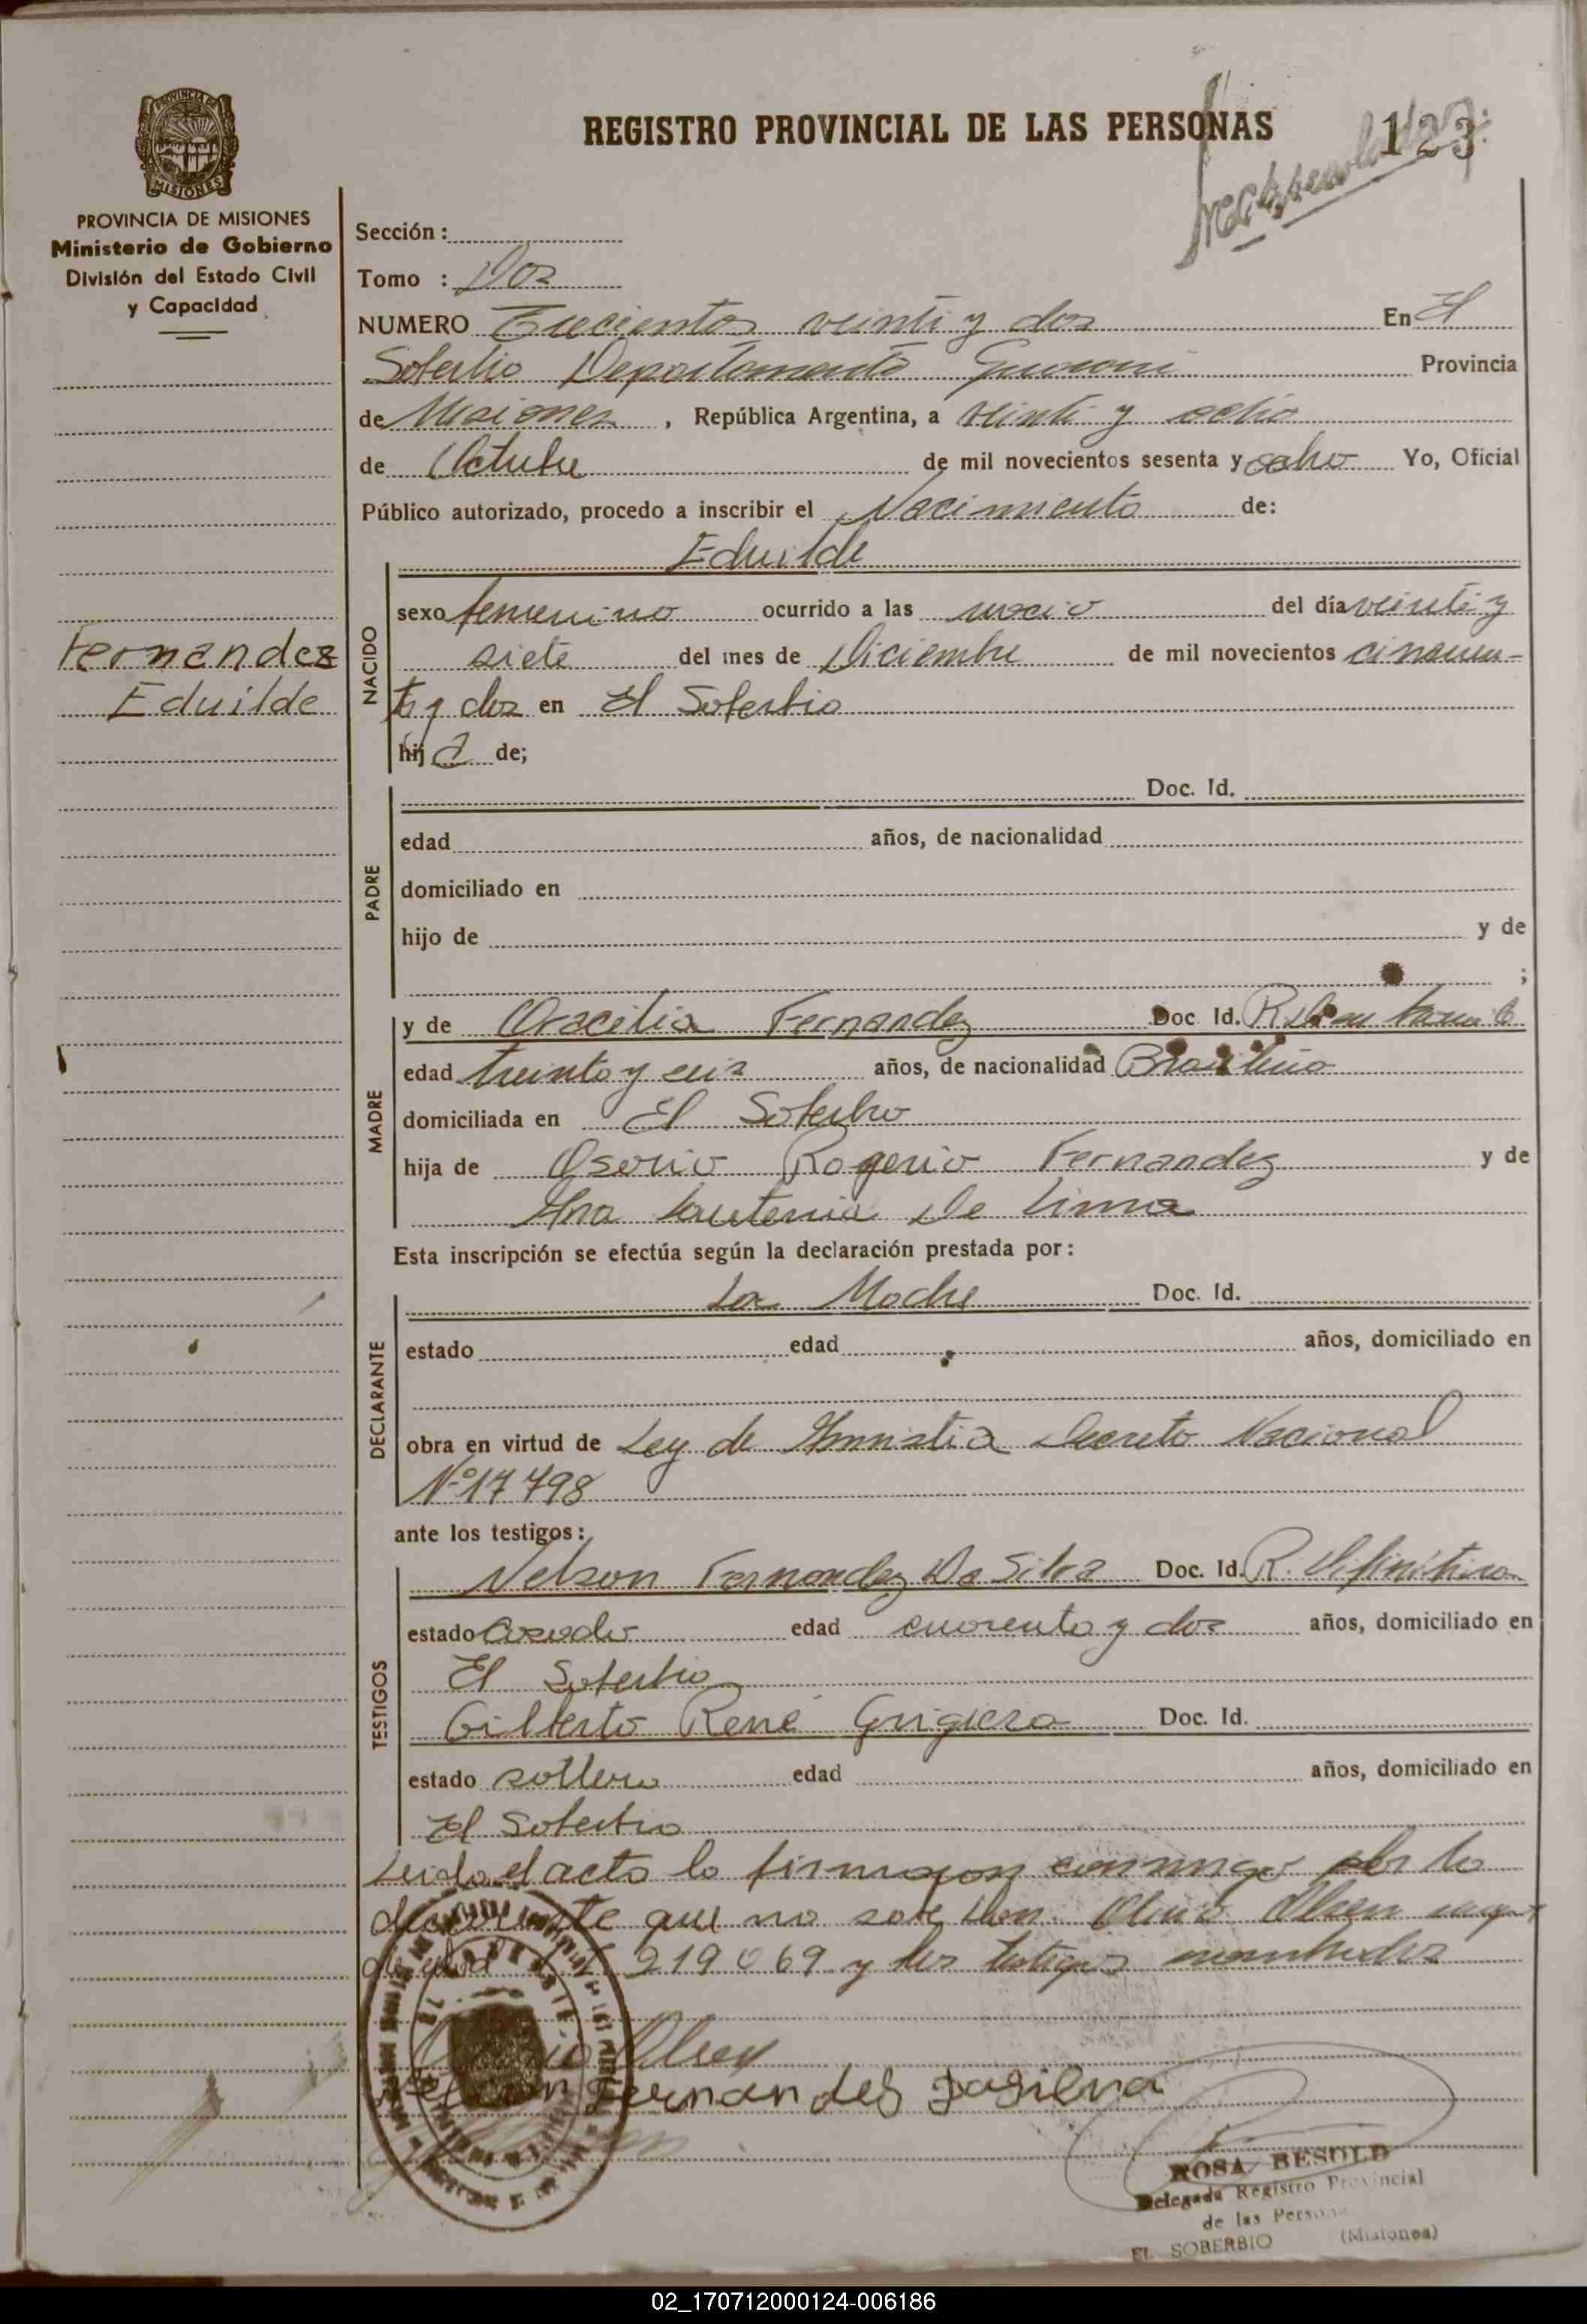 REGISTRO PROVINCIAL DE LAS PERSONAS
123
PROVINCIA DE MISIONES
Ministerio de Gobierno
División del Estado Civil
y Capacidad
Fernandez
Eduilde
Sección :
Tomo : Dos
NUMERO Trecientos veinti y dos En El
Soberbio Departamento Guarani Provincia
de Misiones , República Argentina, a veinti y ocho
de Octubre de mil novecientos sesenta y ocho Yo, Oficial
Público autorizado, procedo a inscribir el Nacimiento de:
Eduilde
NACIDO
sexo femenino ocurrido a las nacio del día veinti y
siete del mes de Diciembre de mil novecientos cincuen-
ta y dos en El Soberbio
hija de;
PADRE
Doc. Id.
edad años, de nacionalidad
domiciliado en
hijo de y de
;
MADRE
y de Oracilia Fernandez Doc Id. R.
edad treinta y seis años, de nacionalidad Brasileña
domiciliada en El Soberbio
hija de Osorio Rogerio Fernandez y de
Ana De Lima
Esta inscripción se efectúa según la declaración prestada por:
DECLARANTE
La Madre Doc. Id.
estado edad años, domiciliado en
obra en virtud de Ley de Amnistia Decreto Nacional
Nº 17798
ante los testigos:
TESTIGOS
Nelson Fernandez Da Silva Doc. Id. R. Difinitiva
estado Casado edad cuarenta y dos años, domiciliado en
El Soberbio
Gilberto René Doc. Id.
estado soltero edad años, domiciliado en
El Soberbio
Leida el acta la firmaron conmigo por la
declarante que no sabe Don Olsen
219069 y los testigos nombrados
Olsen
Fernandes dasilva
ROSA BESOLD
Delegada Registro Provincial
de las Personas
EL SOBERBIO (Misiones)
02_170712000124-006186